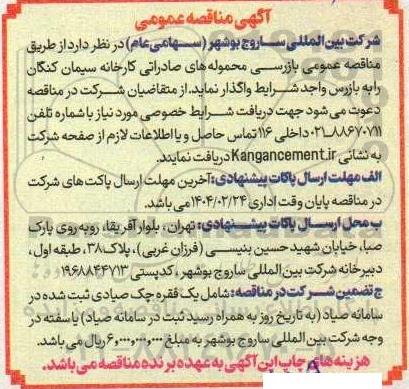 آگهی مناقصه عمومی
شرکت بین المللی ساروج بوشهر (سهامی عام) در نظر دارد از طریق
مناقصه عمومی بازرسی محموله های صادراتی کارخانه سیمان کنگان
را به بازرس واجد شرایط واگذار نماید. از متقاضیان شرکت در مناقصه
دعوت می شود جهت دریافت شرایط خصوصی مورد نیاز با شماره تلفن
۰۲۱-۸۸۶۷۰۷۱۱ داخلی ۱۱۶ تماس حاصل و یا اطلاعات لازم از صفحه شرکت
به نشانی Kangancement.ir دریافت نمایند.
الف مهلت ارسال پاکات پیشنهادی: آخرین مهلت ارسال پاکت های شرکت
در مناقصه پایان وقت اداری ۱۴۰۴/۰۲/۲۴ می باشد.
ب محل ارسال پاکات پیشنهادی: تهران، بلوار آفریقا، روبه روی پارک
صبا، خیابان شهید حسین بنیسی (فرزان غربی)، پلاک ۳۸، طبقه اول،
دبیرخانه شرکت بین المللی ساروج بوشهر، کدپستی ۱۹۶۸۸۴۴۷۱۳
ج تضمین شرکت در مناقصه: شامل یک فقره چک صیادی ثبت شده در
سامانه صیاد (به تاریخ روز به همراه رسید ثبت در سامانه صیاد) یا سفته در
وجه شرکت بین المللی ساروج بوشهر به مبلغ ۶٫۰۰۰٫۰۰۰٫۰۰۰ ریال می باشد.
هزینه های چاپ این آگهی به عهده برنده مناقصه می باشد.